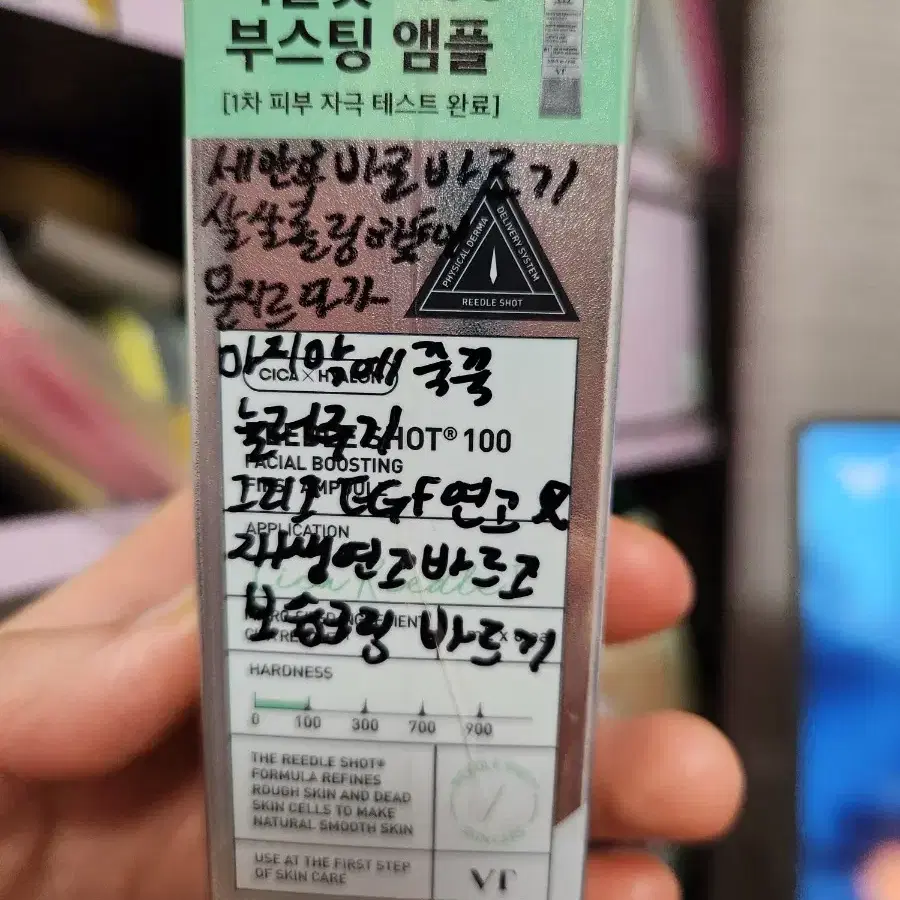 부스팅 앰플
[1차 피부 자극 테스트 완료]
VT
세안후 바로 바르기
살살롤링하
문지르다가
PHYSICAL DERMA DELIVERY SYSTEM
REEDLE SHOT
마지막에 쭉꾹
CICA × HYALON
눌러주기
REEDLE SHOT® 100
FACIAL BOOSTING
FIRST AMPOULE
그리고 EGF연고 &
APPLICATION
재생연고바르고
Cica Reedle
보습크림 바르기
HARDNESS
0 100 300 700 900
THE REEDLE SHOT®
FORMULA REFINES
ROUGH SKIN AND DEAD
SKIN CELLS TO MAKE
NATURAL SMOOTH SKIN
USE AT THE FIRST STEP
OF SKIN CARE
VT